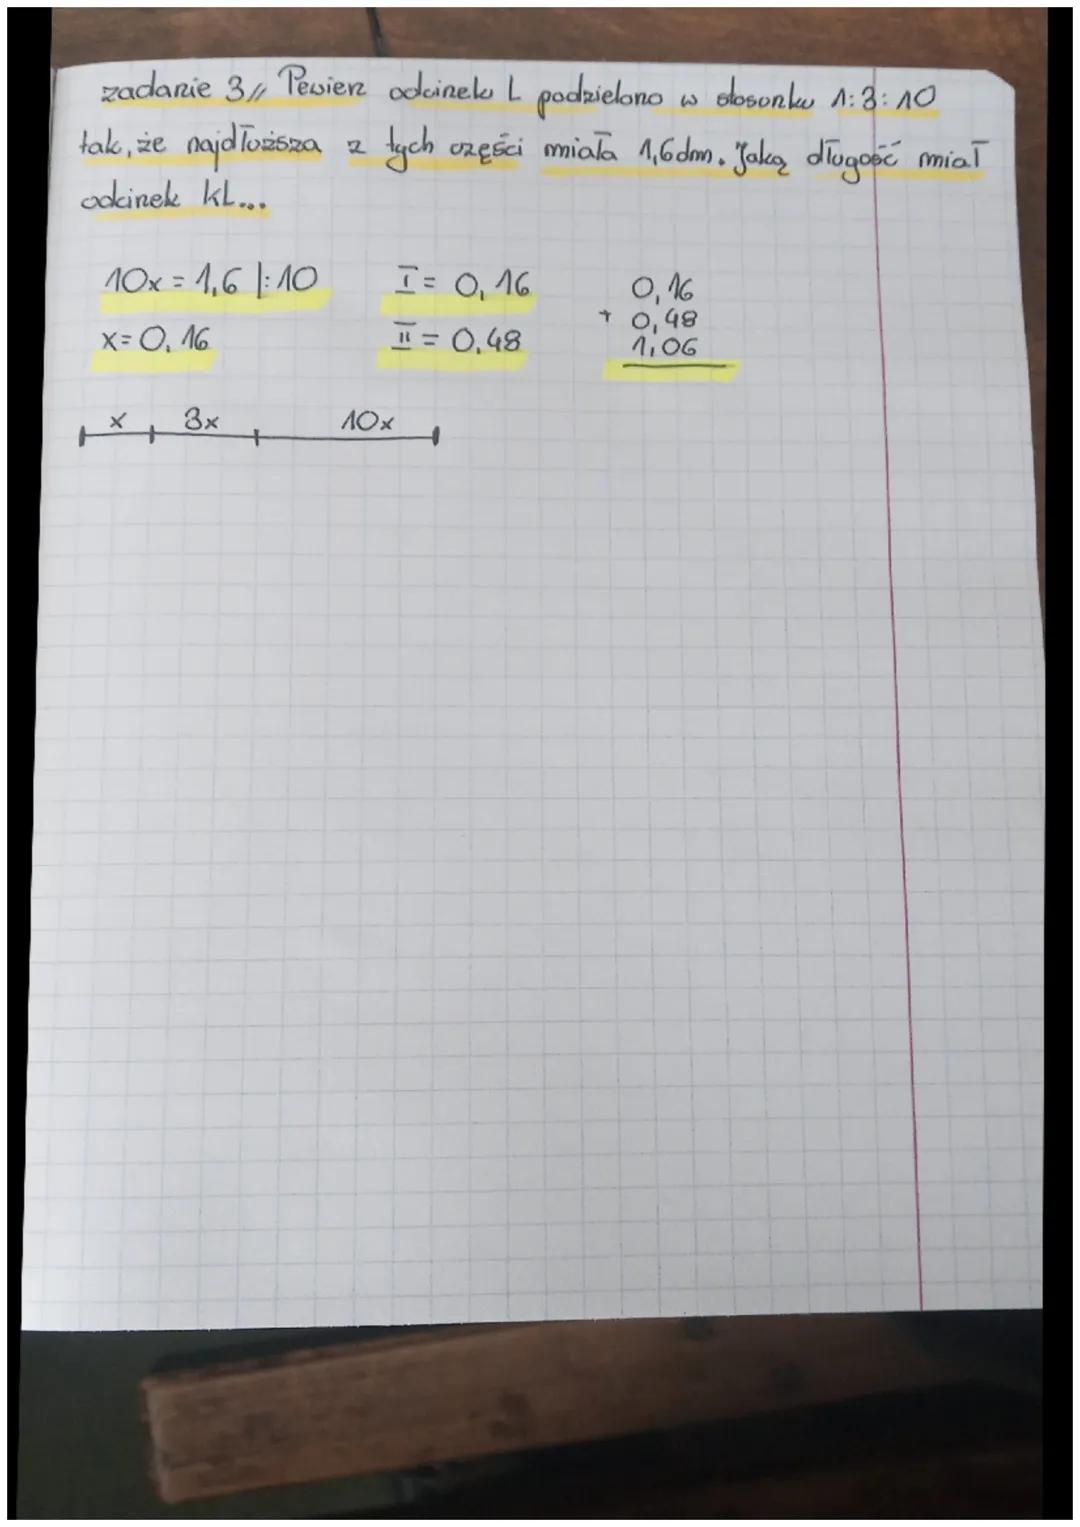 zadanie 3// Pewien odcinek L podzielono w stosunku 1:3:10
tak, że najdłuższa z tych części miała 1,6dm. Jaką długość miał
odcinek KL...
10x = 1,6 |:10
x = 0,16
I = 0,16
II = 0,48
0,16
+ 0,48
1,06
x 3x 10x